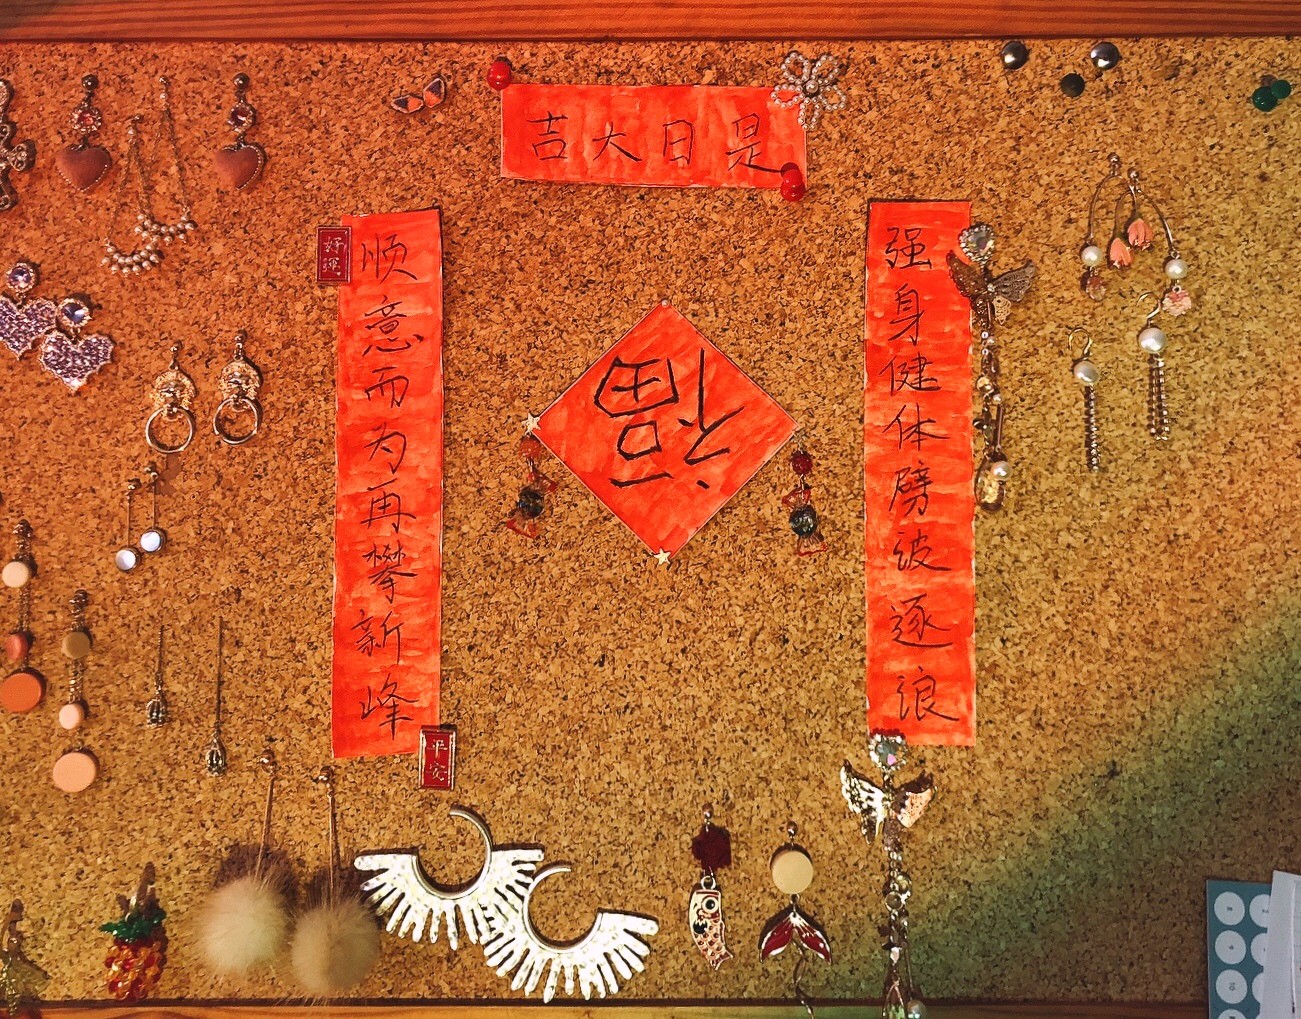 是日大吉
强身健体劈波逐浪
顺意而为再攀新峰
福
好運
平安